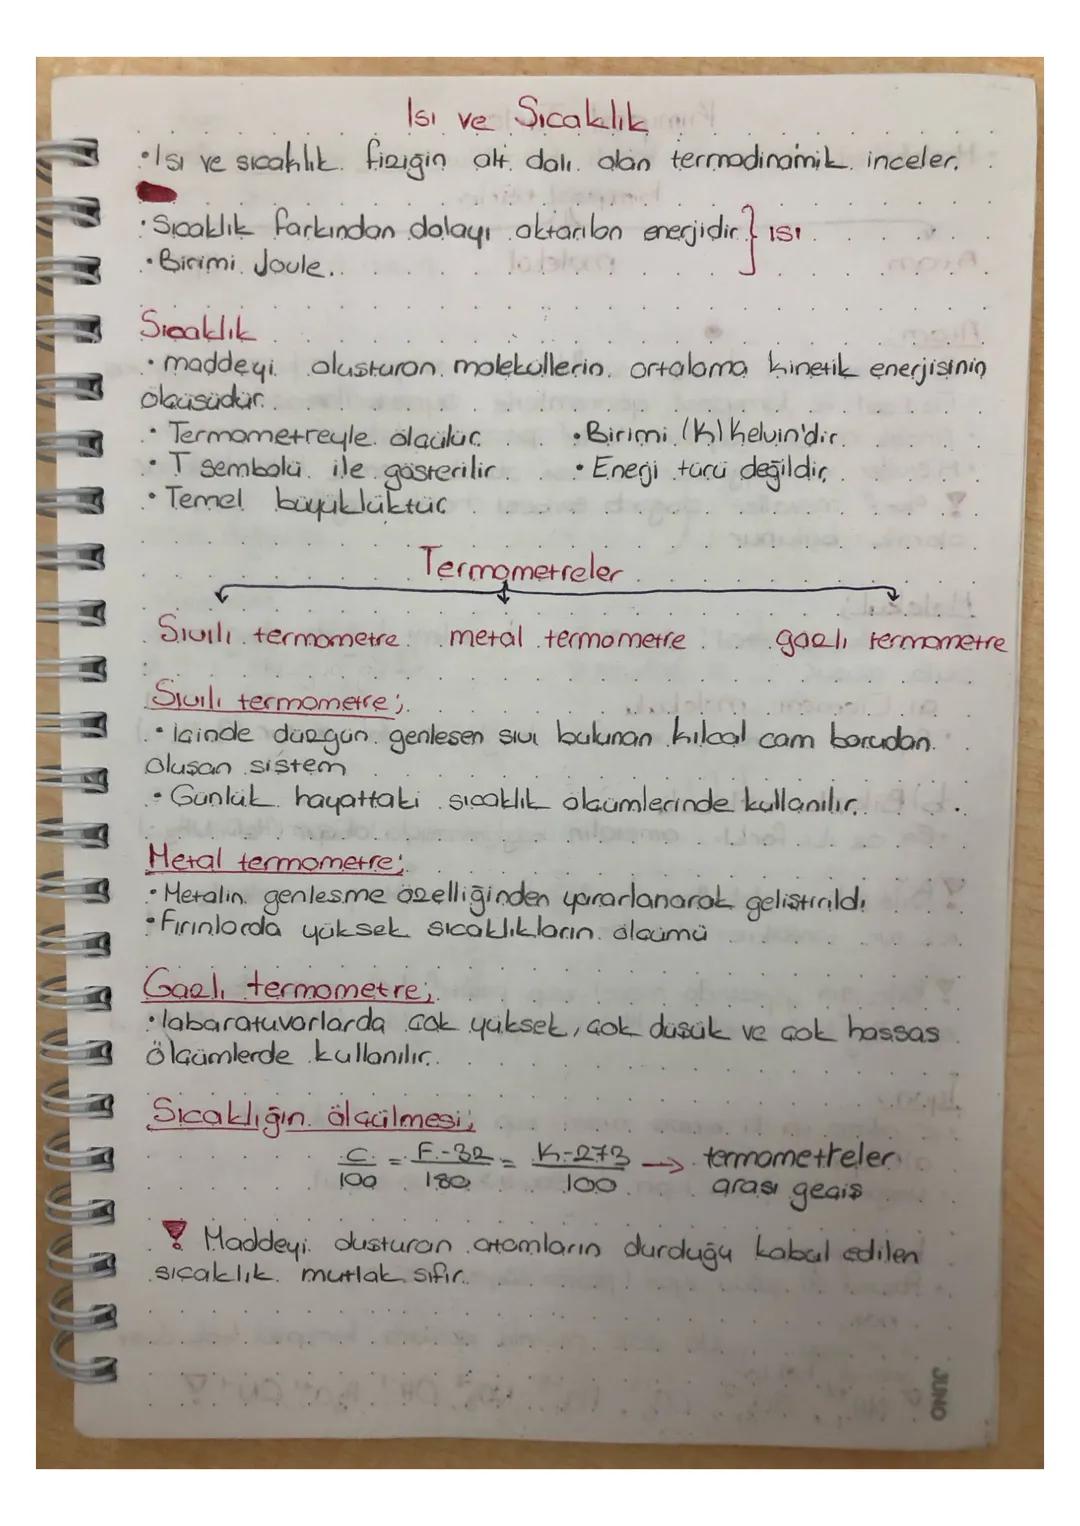 Isı ve Sıcaklık
• Isı ve sıcaklık fiziğin alt dalı olan termodinamik inceler.
• Sıcaklık farkından dolayı aktarılan enerjidir } ısı
• Birimi Joule.
Sıcaklık
• maddeyi oluşturan moleküllerin ortalama kinetik enerjisinin
ölçüsüdür.
• Termometreyle ölçülür. • Birimi (K) Kelvin'dir.
• T sembolü ile gösterilir. • Enerji türü değildir.
• Temel büyüklüktür.
Termometreler
Sıvılı termometre metal termometre gazlı termometre
Sıvılı termometre;
• İçinde düzgün genleşen sıvı bulunan kılcal cam borudan
oluşan sistem
• Günlük hayattaki sıcaklık ölçümlerinde kullanılır.
Metal termometre;
• Metalin genleşme özelliğinden yararlanarak geliştirildi
• Fırınlarda yüksek sıcaklıkların ölçümü
Gazlı termometre;
• labaratuvarlarda çok yüksek, çok düşük ve çok hassas
ölçümlerde kullanılır.
Sıcaklığın ölçülmesi;
C/100 = F-32/180 = K-273/100 → termometreler
arası geçiş
! Maddeyi oluşturan atomların durduğu kabul edilen
sıcaklık mutlak sıfır.
JUNO